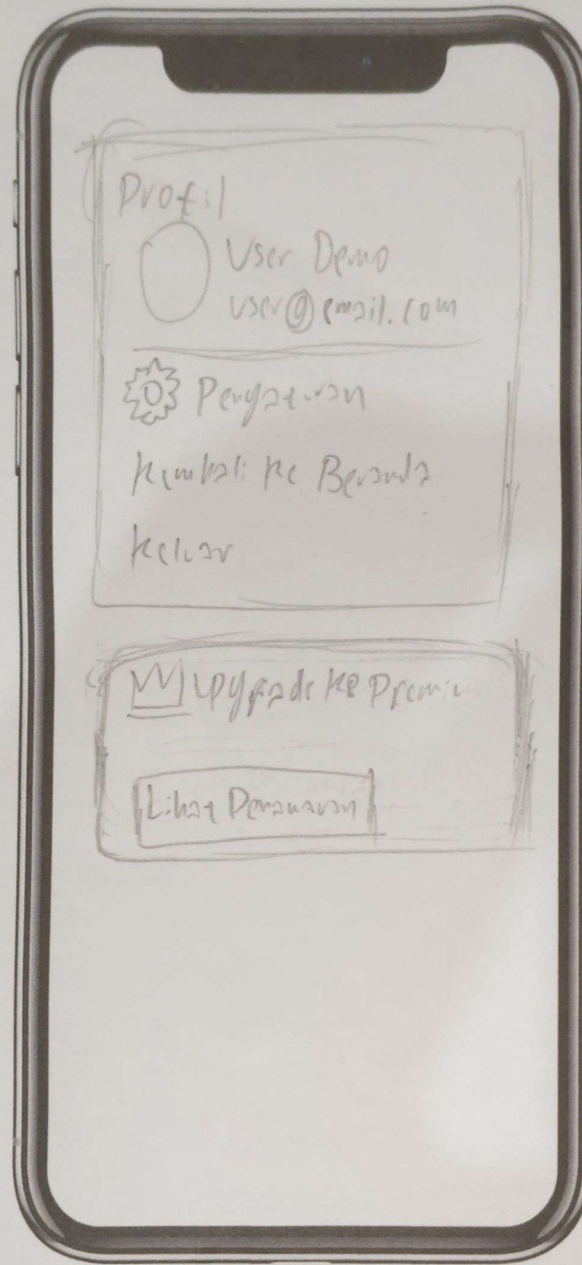 Profil
User Demo
user@email.com
Pengaturan
Kembali Ke Beranda
Keluar
Upgrade Ke Premiu
Lihat Penawaran